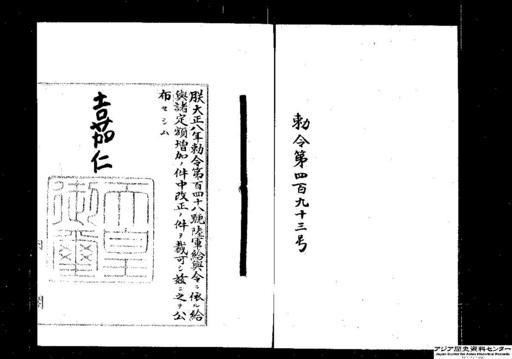 勅令第四百九十三号
朕大正八年勅令第百四十八號陸軍給與令ニ依ル給
與諸定額増加ノ件中改正ノ件ヲ裁可シ茲ニ之ヲ公
布セシム
嘉仁
天皇
御璽
内閣
アジア歴史資料センター
Japan Center for Asian Historical Records